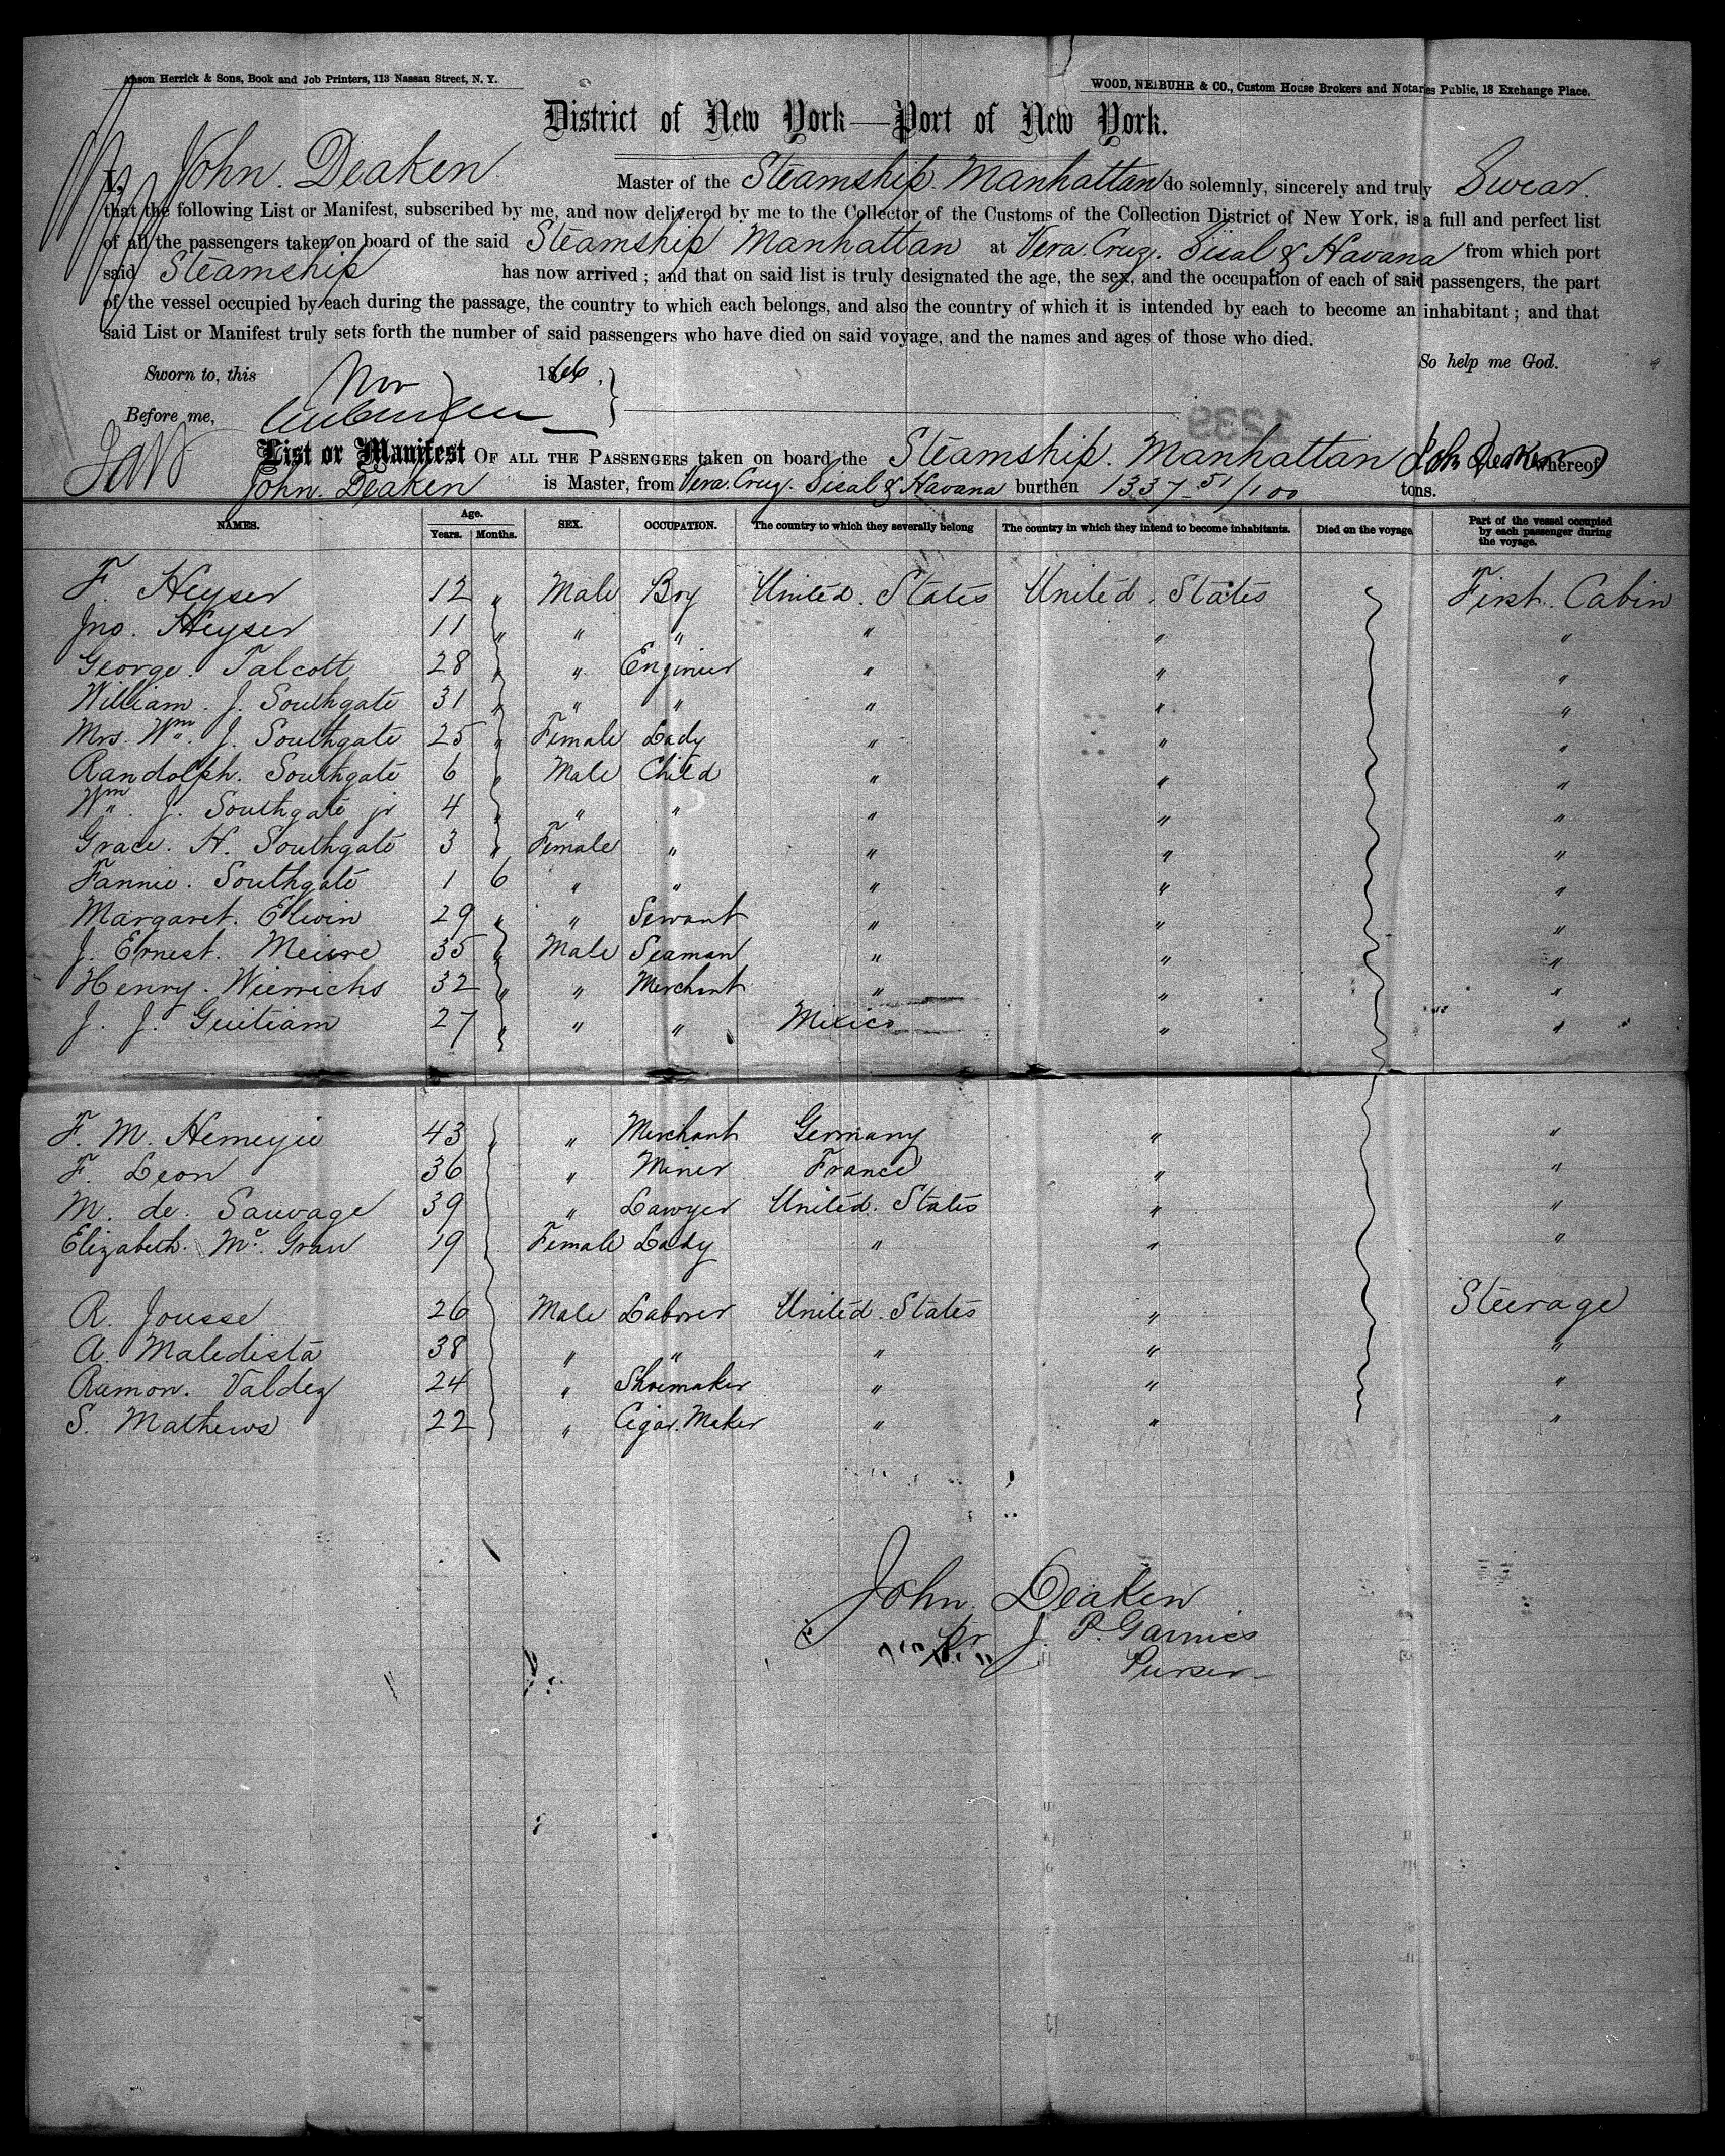 Anson Herrick & Sons, Book and Job Printers, 113 Nassau Street, N. Y.
WOOD, NEIBUHR & CO., Custom House Brokers and Notaries Public, 18 Exchange Place.
District of New York—Port of New York.
I, John. Deaken Master of the Steamship. Manhattan do solemnly, sincerely and truly Swear.
that the following List or Manifest, subscribed by me, and now delivered by me to the Collector of the Customs of the Collection District of New York, is a full and perfect list
of all the passengers taken on board of the said Steamship Manhattan at Vera. Cruz. Sisal & Havana from which port
said Steamship has now arrived; and that on said list is truly designated the age, the sex, and the occupation of each of said passengers, the part
of the vessel occupied by each during the passage, the country to which each belongs, and also the country of which it is intended by each to become an inhabitant; and that
said List or Manifest truly sets forth the number of said passengers who have died on said voyage, and the names and ages of those who died.
So help me God.
Sworn to, this Nov 1866.
Before me,
1239
List or Manifest OF ALL THE PASSENGERS taken on board the Steamship. Manhattan John Deaken whereof
John. Deaken is Master, from Vera. Cruz. Sisal & Havana burthen 1337 51/100 tons.
NAMES. Age. Years. Months. SEX. OCCUPATION. The country to which they severally belong The country in which they intend to become inhabitants. Died on the voyage Part of the vessel occupied by each passenger during the voyage.
F. Heyser 12 " Male Boy United. States United. States First. Cabin
Jno. Heyser 11 " " " " " "
George. Talcott 28 " " Enginier " " "
William. J. Southgate 31 " " " " " "
Mrs. Wm. J. Southgate 25 " Female Lady " " "
Randolph. Southgate 6 " Male Child " " "
Wm. J. Southgate jr 4 " " " " " "
Grace. H. Southgate 3 " Female " " " "
Fannie. Southgate 1 6 " " " " "
Margaret. Elwin 29 " " Servant " " "
J. Ernest. Meiere 35 " Male Seaman " " "
Henry. Wierrichs 32 " " Merchant " " "
J. J. Guitiam 27 " " " Mexico " "
F. M. Hemeyie 43 " " Merchant Germany " "
F. Leon 36 " Miner France " "
M. de. Sauvage 39 " Lawyer United. States " "
Elizabeth. Mc. Graw 19 Female Lady " " "
R. Jousse 26 Male Laborer United. States " Steerage
A. Maledista 38 " " " " "
Ramon. Valdez 24 " Shoemaker " " "
S. Mathews 22 " Cigar. Maker " " "
John. Deaken
pr J. P. Garnies
Purser